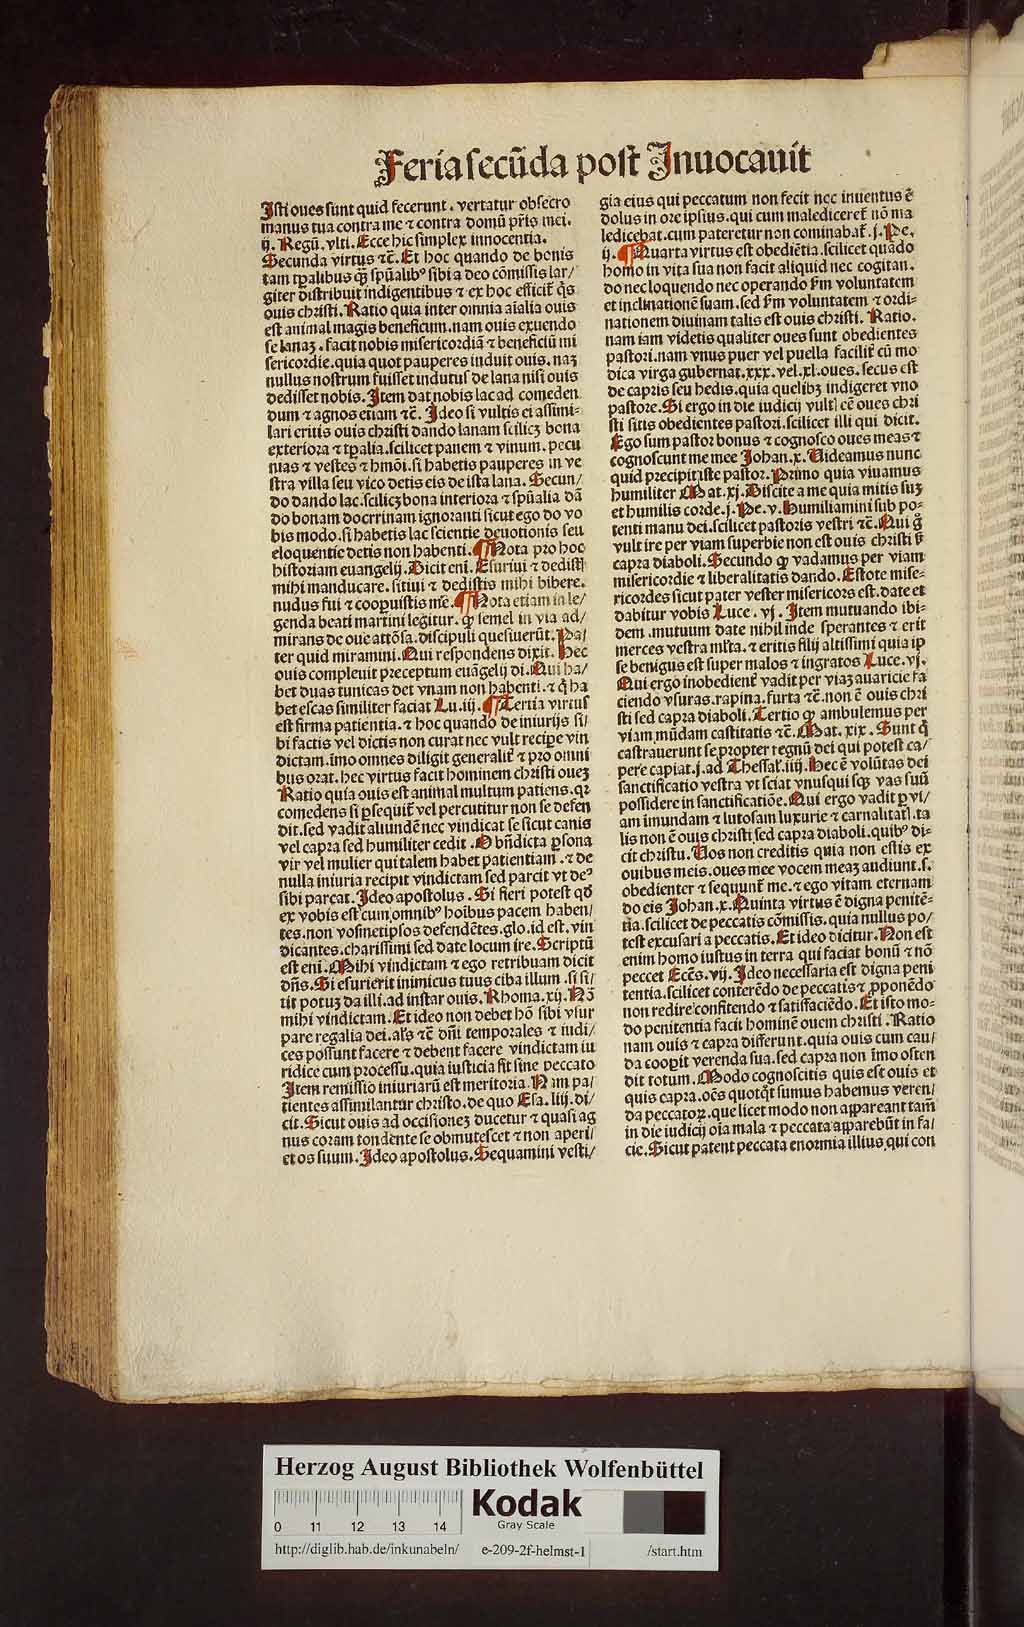 Feria secūda post Inuocauit
Isti oues sunt quid fecerunt . vertatur obsecro
manus tua contra me ⁊ contra domū pr̄is mei .
ij . Regū . vlti . Ecce hic simplex innocentia .
Secunda virtus ⁊c̄ . Et hoc quando de bonis
tam tp̄alibus qȝ sp̄ualibꝰ sibi a deo cōmissis lar/
giter distribuit indigentibus ⁊ ex hoc efficit᷑ qͥs
ouis christi . Ratio quia inter omnia aīalia ouis
est animal magis beneficum . nam ouis exuendo
se lanaȝ . facit nobis misericordiā ⁊ beneficiū mi
sericordie . quia quot pauperes induit ouis . naȝ
nullus nostrum fuisset indutus de lana nisi ouis
dedisset nobis . Item dat nobis lac ad comeden
dum ⁊ agnos etiam ⁊c̄ . Ideo si vultis ei assimi-
lari eritis ouis christi dando lanam scilicȝ bona
exteriora ⁊ tp̄alia . scilicet panem ⁊ vinum . pecu
nias ⁊ vestes ⁊ hmōi . si habetis pauperes in ve
stra villa seu vico detis eis de ista lana . Secun/
do dando lac . scilicȝ bona interiora ⁊ sp̄ualia dā
do bonam doctrinam ignoranti sicut ego do vo
bis modo . si habetis lac scientie deuotionis seu
eloquentie detis non habenti . ¶ Nota pro hoc
historiam euangelij . Dicit eni . Esuriui ⁊ dedistl
mihi manducare . sitiui ⁊ dedistis mihi bibere .
nudus fui ⁊ cooꝑuistis me . ¶ Nota etiam in le/
genda beati martini legitur . ꝙ semel in via ad/
mirans de oue attōsa . discipuli quesiuerūt . Pa/
ter quid miramini . Qui respondens dixit . Hec
ouis compleuit preceptum euāgelij di . Qui ha/
bet duas tunicas det vnam non habenti . ⁊ qͥ ha
bet escas similiter faciat Lu . iij . ¶ Tertia virtus
est firma patientia . ⁊ hoc quando de iniurijs si/
bi factis vel dictis non curat nec vult recipe vin
dictam . īmo omnes diligit generalit᷑ ⁊ pro omni
bus orat . hec virtus facit hominem christi oueȝ
Ratio quia ouis est animal multum patiens . qꝛ
comedens si ꝑsequit᷑ vel percutitur non se defen
dit . sed vadit aliunde nec vindicat se sicut canis
vel capra sed humiliter cedit . O bn̄dicta ꝑsona
vir vel mulier qui talem habet patientiam . ⁊ de
nulla iniuria recipit vindictam sed parcit vt deꝰ
sibi parcat . Ideo apostolus . Si fieri potest qd̄
ex vobis est cum omnibꝰ hoibus pacem haben/
tes . non vosmetipsos defendētes . glo . id est . vin
dicantes . charissimi sed date locum ire . Scriptū
est eni . Mihi vindictam ⁊ ego retribuam dicit
dn̄s . Si esurierit inimicus tuus ciba illum . si si/
tit potuȝ da illi . ad instar ouis . Rhoma . xij . Nō
mihi vindictam . Et ideo non debet hō sibi vsur
pare regalia dei . al̄s ⁊c̄ dn̄i temporales ⁊ iudi/
ces possunt facere ⁊ debent facere vindictam iu
ridice cum processu . quia iusticia fit sine peccato
Item remissio iniuriarū est meritoria . Nam pa/
tientes assimilantur christo . de quo Esa . liij . di/
cit . Sicut ouis ad occisioneȝ ducetur ⁊ quasi ag
nus coram tondente se obmutescet ⁊ non aperi/
et os suum . Ideo apostolus . Sequamini vesti/
gia eius qui peccatum non fecit nec inuentus ē
dolus in ore ipsius . qui cum malediceret᷑ nō ma
ledicebat . cum pateretur non cominabat᷑ . j . Pe .
ij . ¶ Quarta virtus est obediētia . scilicet quādo
homo in vita sua non facit aliquid nec cogitan .
do nec loquendo nec operando s̄m voluntatem
et inclinationē suam . sed s̄m voluntatem ⁊ ordi-
nationem diuinam talis est ouis christi . Ratio .
nam iam videtis qualiter oues sunt obedientes
pastori . nam vnus puer vel puella facilit᷑ cū mo
dica virga gubernat . xxx . vel . xl . oues . secus est
de capris seu hedis . quia quelibȝ indigeret vno
pastore . Si ergo in die iudicij vultl cē oues chri
sti sitis obedientes pastori . scilicet illi qui dicit .
Ego sum pastor bonus ⁊ cognosco oues meas ⁊
cognoscunt me mee Johan . x . Uideamus nunc
quid precipit iste pastor . Primo quia viuamus
humiliter Mat . xj . Discite a me quia mitis suȝ
et humilis corde . j . Pe . v . Humiliamini sub po-
tenti manu dei . scilicet pastoris vestri ⁊c̄ . Qui g̊
vult ire per viam superbie non est ouis christi s̄
capra diaboli . Secundo ꝙ vadamus per viam
misericordie ⁊ liberalitatis dando . Estote mise-
ricordes sicut pater vester misericors est . date et
dabitur vobis Luce . vj . Item mutuando ibi-
dem . mutuum date nihil inde sperantes ⁊ erit
merces vestra ml̄ta . ⁊ eritis filij altissimi quia ip
se benignus est super malos ⁊ ingratos Luce . vj .
Qui ergo inobedient᷑ vadit per viaȝ auaricie fa
ciendo vsuras . rapina . furta ⁊c̄ . non ē ouis chri
sti sed capra diaboli . Tertio ꝙ ambulemus per
viam mūdam castitatis ⁊c̄ . Mat . xix . Sunt qͥ
castrauerunt se propter regnū dei qui potest ca/
pere capiat . j . ad Thessal̄ . iiij . Hec ē volūtas dei
sanctificatio vestra vt sciat vnusquisqȝ vas suū
possidere in sanctificatiōe . Qui ergo vadit ꝑ vi/
am imundam ⁊ lutosam luxurie ⁊ carnalitatl . ta
lis non ē ouis christi sed capra diaboli . quibꝰ di-
cit christu . Uos non creditis quia non estis ex
ouibus meis . oues mee vocem meaȝ audiunt . s .
obedienter ⁊ sequunt᷑ me . ⁊ ego vitam eternam
do eis Johan . x . Quinta virtus ē digna penitē-
tia . scilicet de peccatis cōmissis . quia nullus po/
test excusari a peccatis . Et ideo dicitur . Non est
enim homo iustus in terra qui faciat bonū ⁊ nō
peccet Ecc̄s . vij . Ideo necessaria est digna peni
tentia . scilicet conterēdo de peccatis ⁊ ꝓponēdo
non redire confitendo ⁊ satisfaciēdo . Et isto mo-
do penitentia facit hominē ouem christi . Ratio
nam ouis ⁊ capra differunt . quia ouis cum cau/
da cooꝑit verenda sua . sed capra non īmo osten
dit totum . Modo cognoscitis quis est ouis et
quis capra . oēs quotqͦt sumus habemus veren/
da peccatoꝝ . que licet modo non appareant tam̄
in die iudicij oīa mala ⁊ peccata apparebūt in fa/
cie . Sicut patent peccata enormia illius qui con
Herzog August Bibliothek Wolfenbüttel
Kodak
Gray Scale
0 11 12 13 14
http://diglib.hab.de/inkunabeln/ e-209-2f-helmst-1 /start.htm